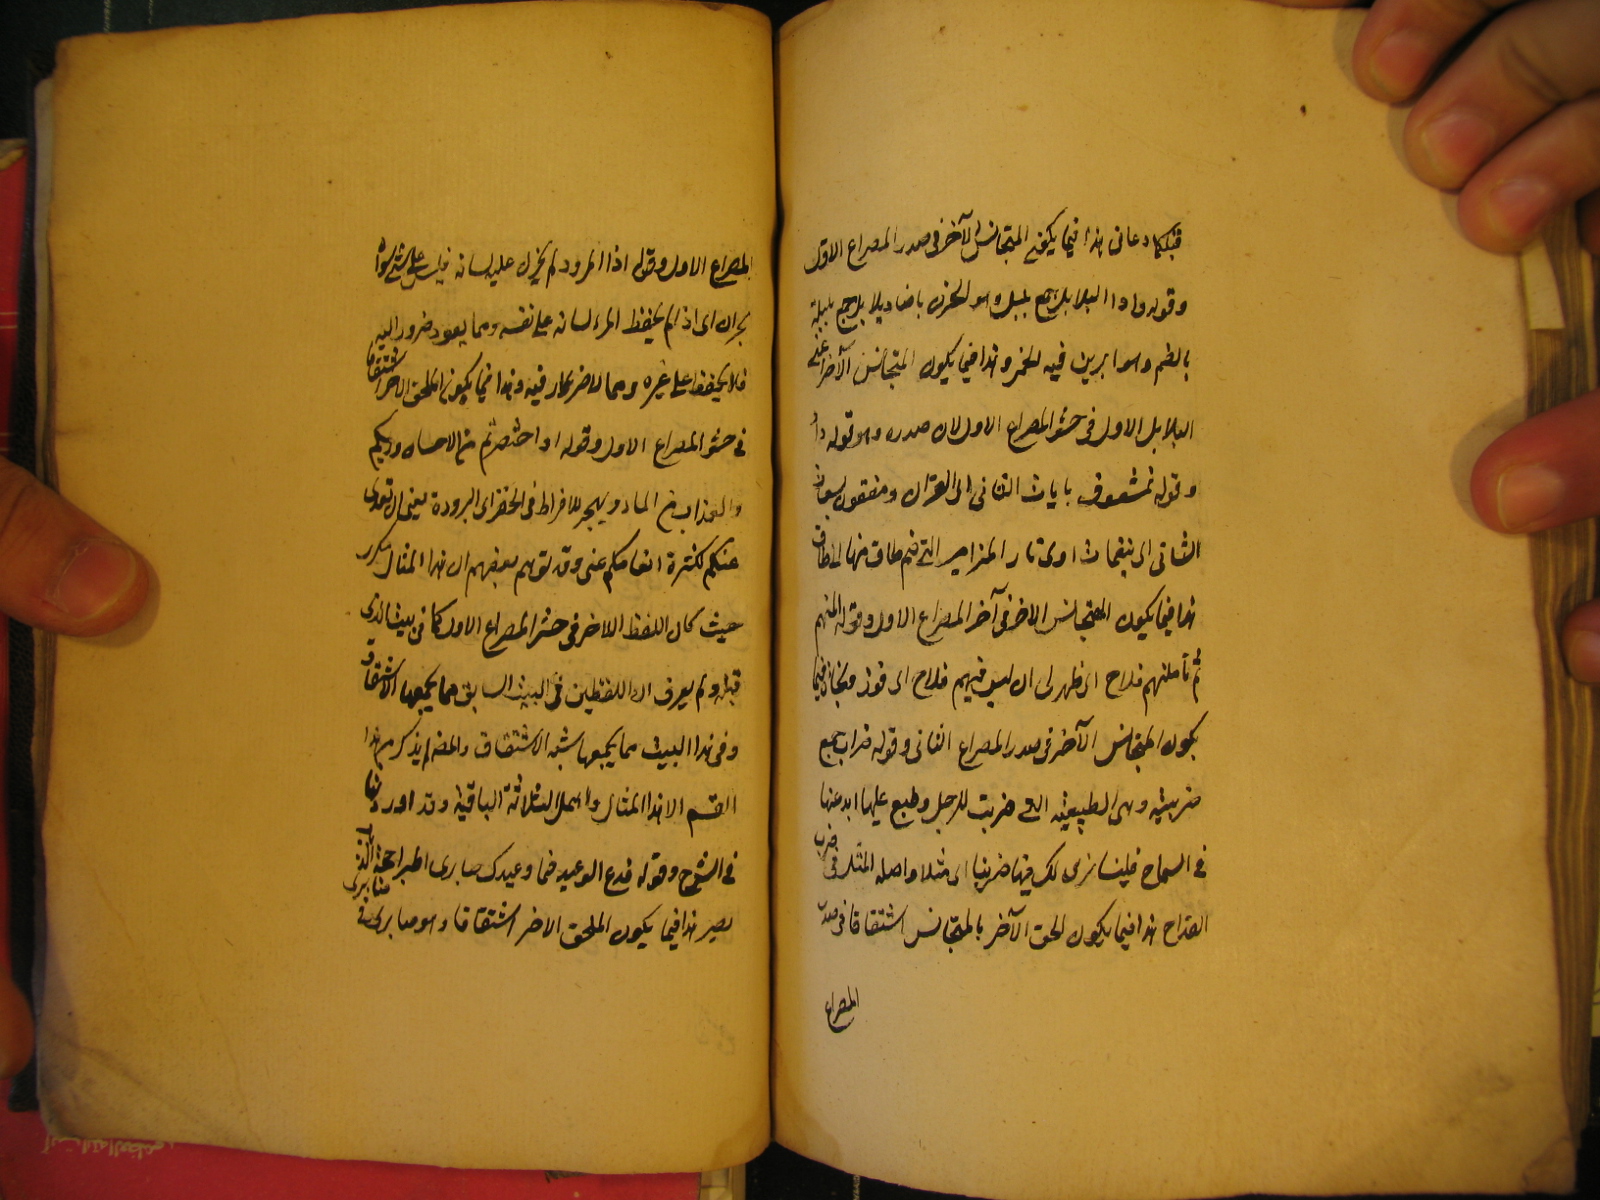 قبلكما دعانى هذا فيما يكون المتجانس الآخر فى صدر المصراع الاول
وقوله واذا البلابل جمع بلبل وهو الحزن باضاد بلابل جمع بلبلة
بالضم وهو ابريق فيه الخمر وهذا فيما يكون المتجانس الآخر اعنى
البلابل الاول فى حشو المصراع الاول لان صدره وهو قوله واذا
وقوله فمشعوف بايات الثانى اى القرآن ومفتون برنات
الثانى اى بنغمات اوتار المزامير التى ضم طاق منها الى طاق
هذا فيما يكون المتجانس الاخر فى آخر المصراع الاول وقوله املتهم
ثم تأملتهم فلاح اى ظهر لى ان ليس فيهم فلاح اى فوز ونجاة فيما
يكون المتجانس الآخر فى صدر المصراع الثانى وقوله ضرايب جمع
ضريبة وهى الطبيعة التى ضربت للرجل وطبع عليها ابدعتها
فى السماح فلسنا نرى لك فيها ضريبا اى مثلا واصله المثل فى ضرب
القداح هذا فيما يكون الملحق الآخر بالمتجانس اشتقاقا فى صدر
المصراع
المصراع الاول وقوله اذا المرء لم يخزن عليه لسانه فليس على شئ سواه
بخزان اى اذا لم يحفظ المرء لسانه على نفسه ومما يعود ضرره اليه
فلا يحفظه على غيره ومما لا ضرر له فيه وهذا فيما يكون الملحق الاخر اشتقاقا
فى حشو المصراع الاول وقوله لو اختصرتم من الاحسان زرتكم
والعذب من الماء يهجر للافراط فى الخصر اى البرودة يعنى ان بعدى
عنكم لكثرة انعامكم عنى وقد توهم بعضهم ان هذا المثال مكرر
حيث كان اللفظ الاخر فى حشو المصراع الاول كما فى البيت الذى
قبله ولم يعرف ان اللفظين فى البيت السابق مما يجمعها الاشتقاق
وفى هذا البيت مما يجمعها شبه الاشتقاق والمصنف لم يذكر من هذا
القسم الا هذا المثال واهمل الثلاثة الباقية وقد اوردناها
فى الشرح وقوله فدع الوعيد فما وعيدك ضايرى اطنين اجنحة الذباب
يضير هذا فيما يكون الملحق الاخر اشتقاقا وهو ضايرى فى